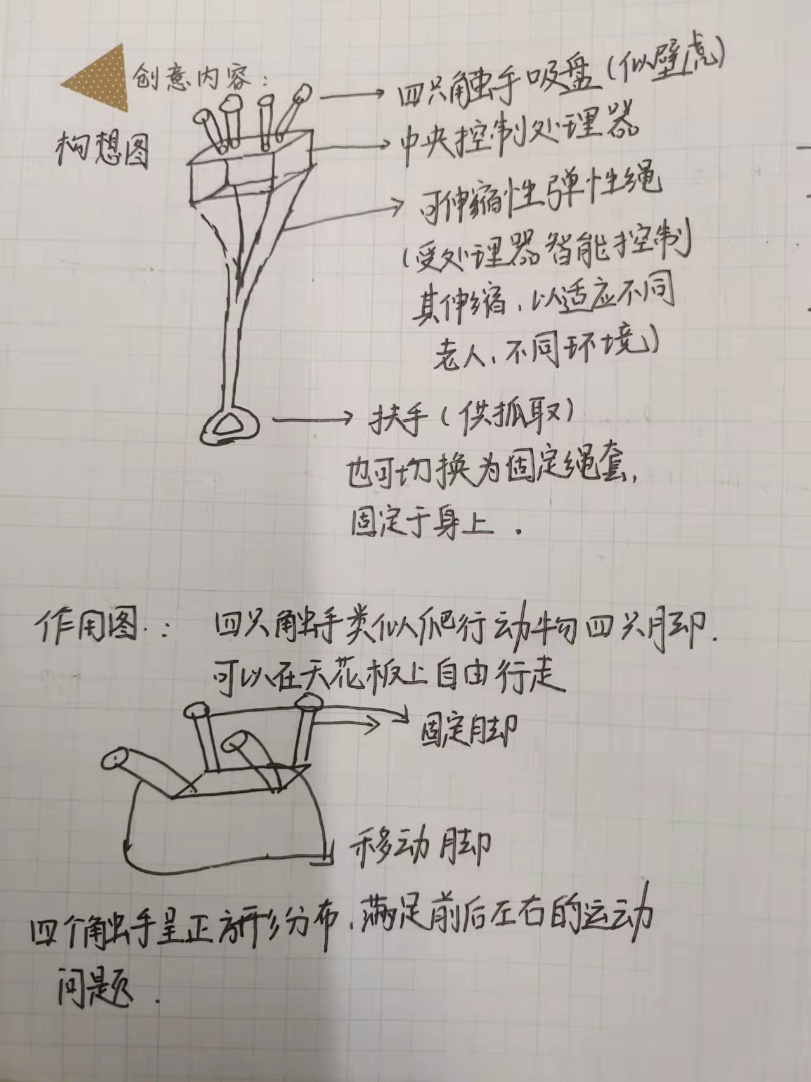 创意内容：
构想图
四只触手吸盘（似壁虎）
中央控制处理器
可伸缩性弹性绳
（受处理器智能控制
其伸缩，以适应不同
老人，不同环境）
扶手（供抓取）
也可切换为固定绳套，
固定于身上．
作用图：四只触手类似爬行动物四只脚．
可以在天花板上自由行走
固定脚
移动脚
四个触手呈正方形分布，满足前后左右的运动
问题．